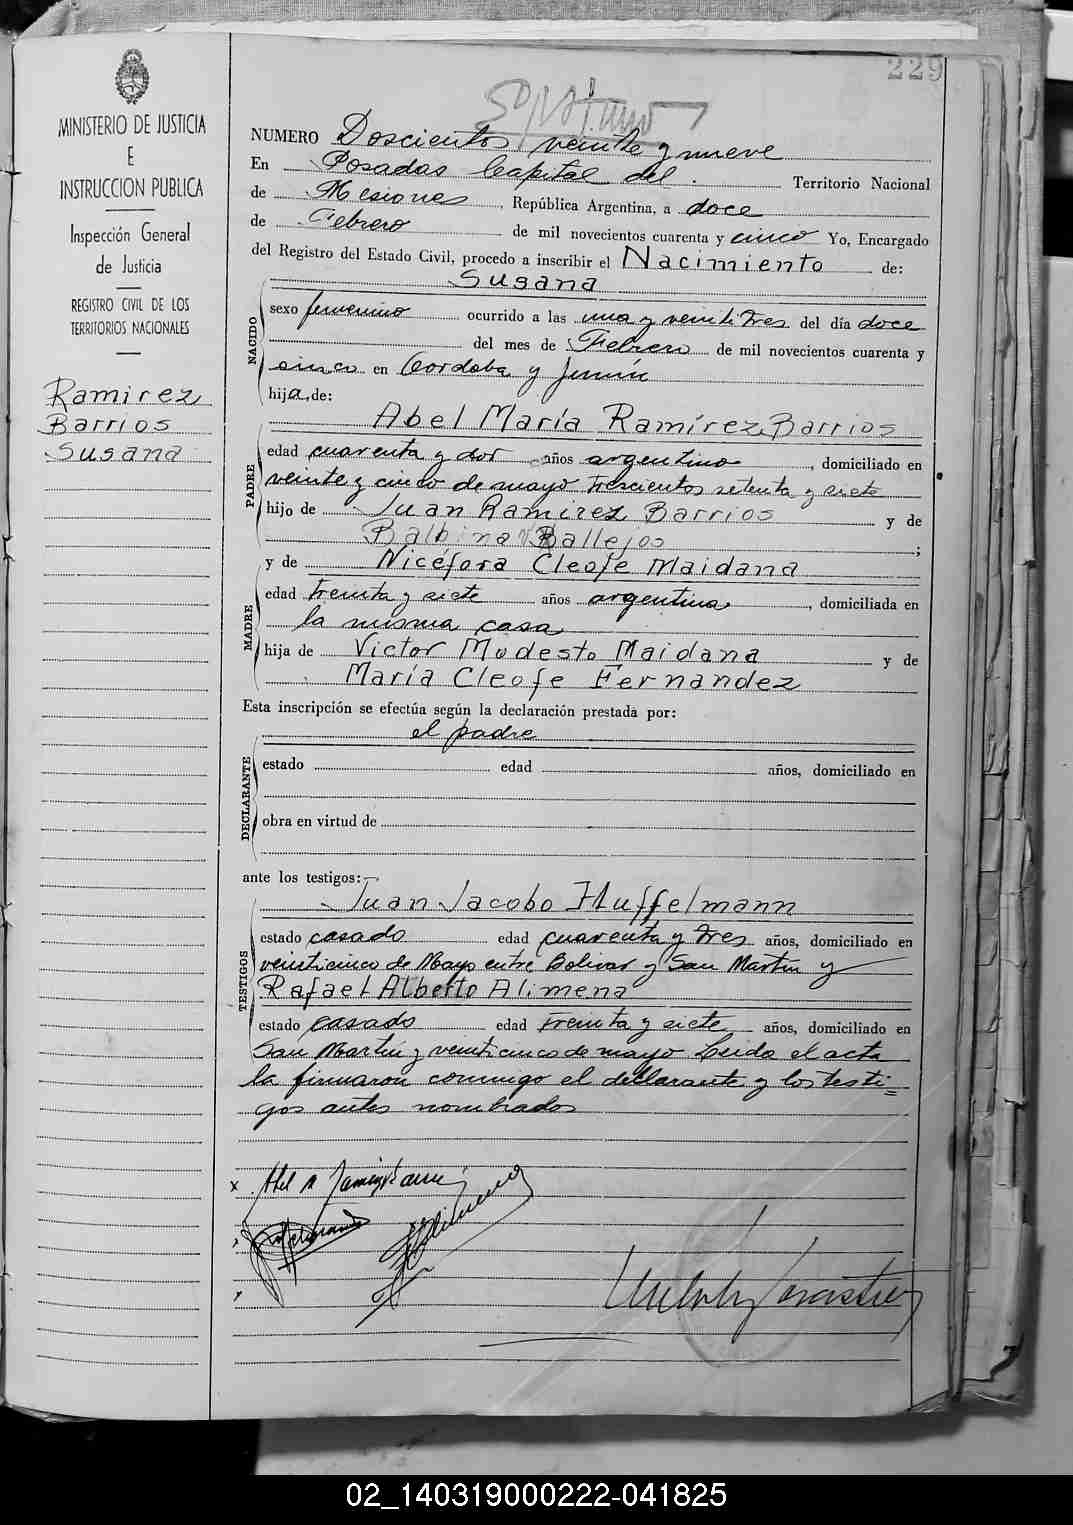 229
MINISTERIO DE JUSTICIA
E
INSTRUCCION PUBLICA
Inspección General
de Justicia
REGISTRO CIVIL DE LOS
TERRITORIOS NACIONALES
Ramirez
Barrios
Susana
NUMERO Doscientos veinte y nueve
En Posadas Capital del Territorio Nacional
de Misiones, República Argentina, a doce
de Febrero de mil novecientos cuarenta y cinco Yo, Encargado
del Registro del Estado Civil, procedo a inscribir el Nacimiento de:
Susana
NACIDO
sexo femenino ocurrido a las una y veintitres del día doce
del mes de Febrero de mil novecientos cuarenta y
cinco en Cordoba y Junín
hija, de:
Abel María Ramírez Barrios
PADRE
edad cuarenta y dos años argentino, domiciliado en
veinte y cinco de mayo trescientos setenta y siete
hijo de Juan Ramirez Barrios y de
Balbina Ballejos;
y de Nicéfora Cleofe Maidana
MADRE
edad treinta y siete años argentina, domiciliada en
la misma casa
hija de Victor Modesto Maidana y de
María Cleofe Fernandez
Esta inscripción se efectúa según la declaración prestada por:
el padre
DECLARANTE
estado edad años, domiciliado en
obra en virtud de
ante los testigos:
Juan Jacobo Huffelmann
TESTIGOS
estado casado edad cuarenta y tres años, domiciliado en
veinticinco de Mayo entre Bolivar y San Martin y
Rafael Alberto Alimena
estado casado edad treinta y siete años, domiciliado en
San Martin y veinticinco de mayo Leida el acta
la firmaron conmigo el declarante y los testi=
gos antes nombrados
02_140319000222-041825